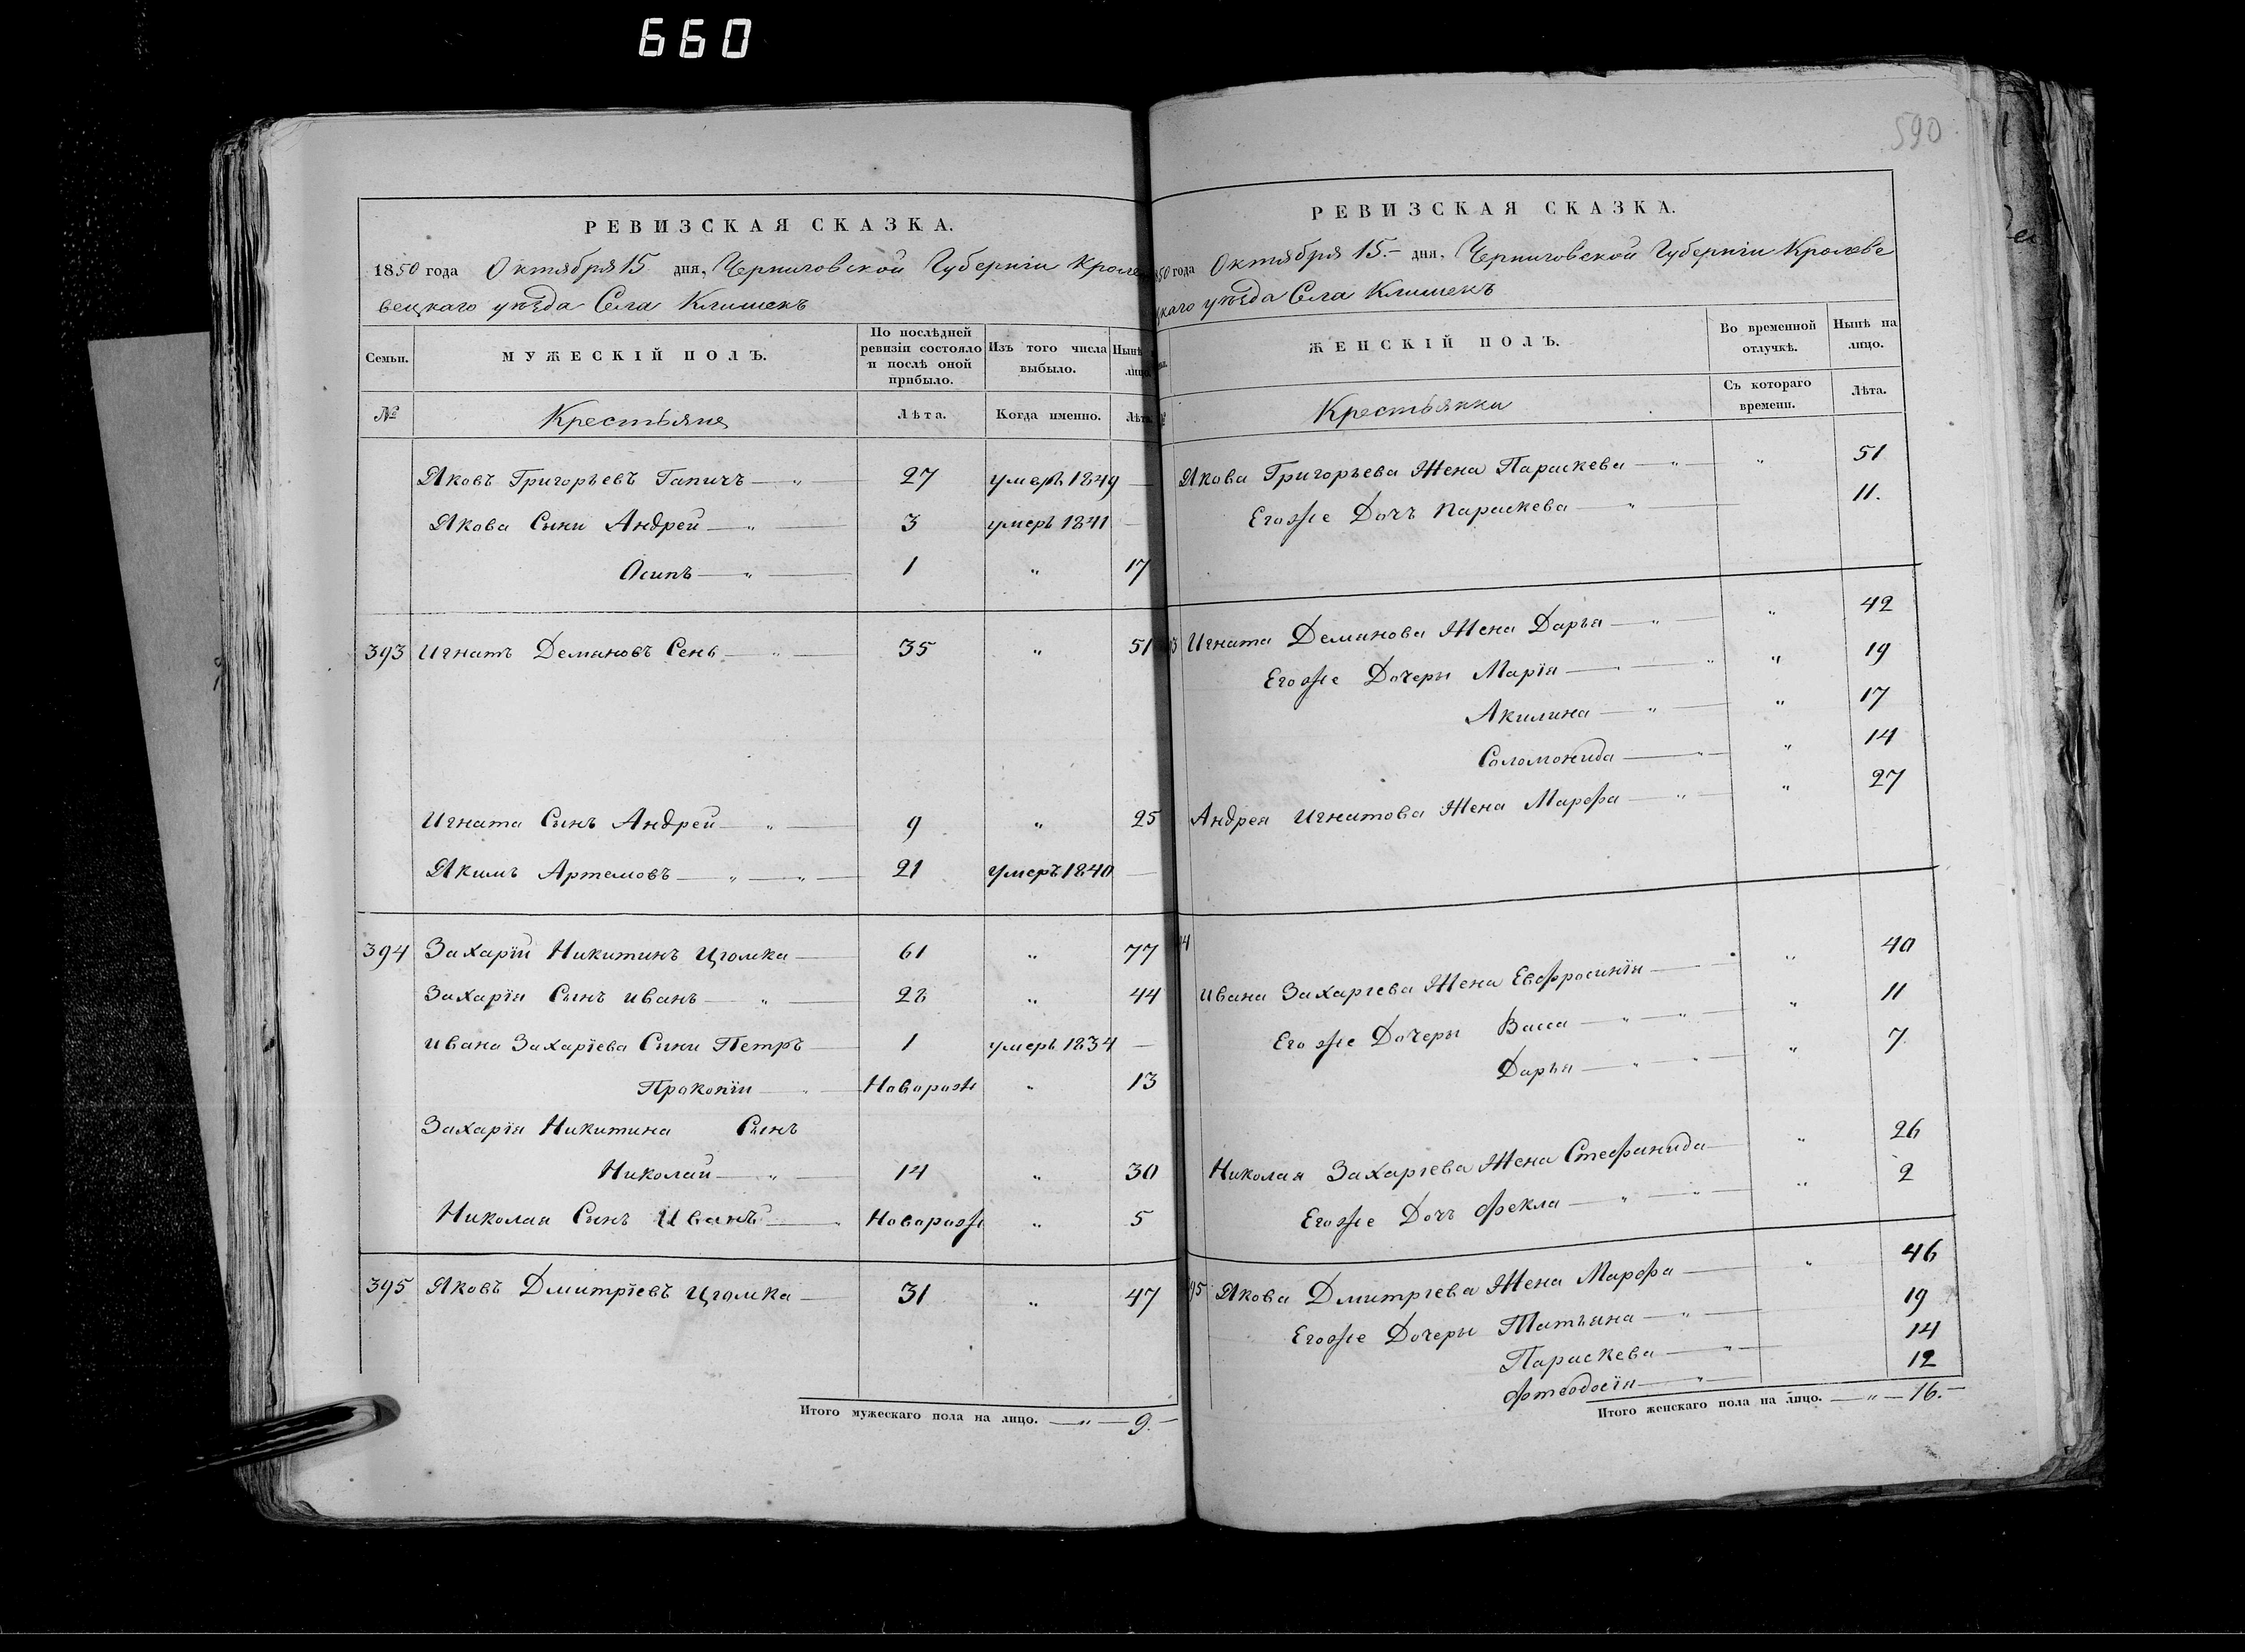 660
590
РЕВИЗСКАЯ СКАЗКА.
1850 года Октября 15 дня, Черниговской Губерніи Кроле
вецкаго уѣзда Села Клишекъ
Семьи.
МУЖЕСКІЙ ПОЛЪ.
По послѣдней ревизіи состояло и послѣ оной прибыло.
Изъ того числа выбыло.
Нынѣ лицо
№
Крестьяне
Лѣта.
Когда именно.
Лѣта
Яковъ Григорьевъ Гапичъ 27 умеръ 1849
Якова Сыни Андрей 3 умеръ 1841
Осипъ 1 " 17
393 Игнатъ Демяновъ Сень 35 " 51
Игната Сынъ Андрей 9 " 25
Якимъ Артемовъ 21 умеръ 1840
394 Захарій Никитинъ Цгомка 61 " 77
Захарія Сынъ Иванъ 28 " 44
Ивана Захаріева Сыни Петръ 1 умеръ 1834
ПрокопійНоворож " 13
Захарія Никитина Сынъ
Николай 14 " 30
Николая Сынъ Иванъ Новорож " 5
395 Яковъ Дмитріевъ Цгомка 31 " 47
Итого мужескаго пола на лицо. — " — 9.
РЕВИЗСКАЯ СКАЗКА.
850 года Октября 15.- дня, Черниговской Губерніи Кролеве
цкаго уѣзда Села Клишекъ
ЖЕНСКІЙ ПОЛЪ.
Во временной отлучкѣ.
Нынѣ на лицо.
Крестьянки
Съ котораго времени.
Лѣта.
Якова Григорьева Жена Параскева " 51
Егоже Дочъ Параскева 11.
Игната Демянова Жена Дарья " 42
Егоже Дочери Марія " 19
Акилина " 17
Соломонида " 14
Андрея Игнатова Жена Марфа " 27
Ивана Захаріева Жена Евфросинія " 40
Егоже Дочеры Васса " 11
Дарья " 7
Николая Захаріева Жена Стефанида " 26
Егоже Дочъ Фекла " 2
95 Якова Дмитріева Жена Марфа " 46
Егоже Дочеры Татьяна 19
Параскева 14
Фтеодосія 12
Итого женскаго пола на лицо. — " — 16.